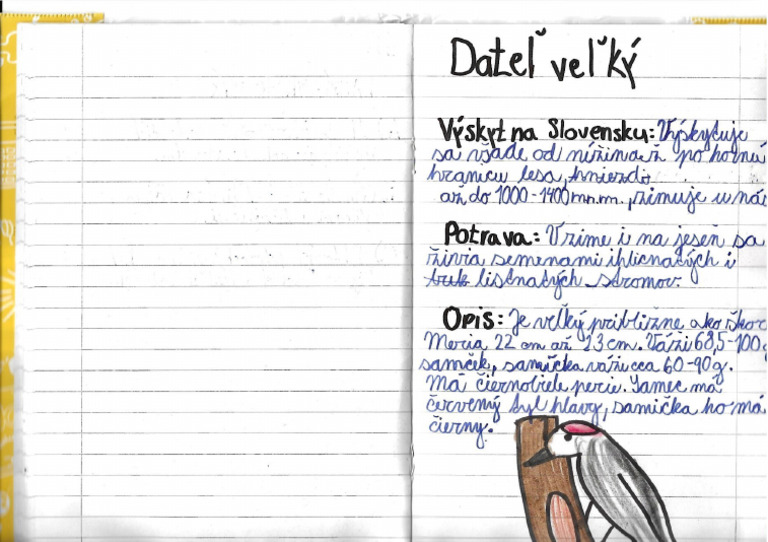 Dateľ veľký
Výskyt na Slovensku: Vyskytuje
sa všade od nížin až po hornú
hranicu lesa, hniezdo
až do 1000-1400 m.n.m., zimuje u nás
Potrava: V zime i na jeseň sa
živia semenami ihličnatých i
listnatých stromov.
Opis: Je veľký približne ako škor
Meria 22 cm až 23 cm. Váži 68,5-100g
samček, samička váži cca 60-90g.
Má čiernobiele perie. Samec má
červený tyl hlavy, samička ho má
čierny.